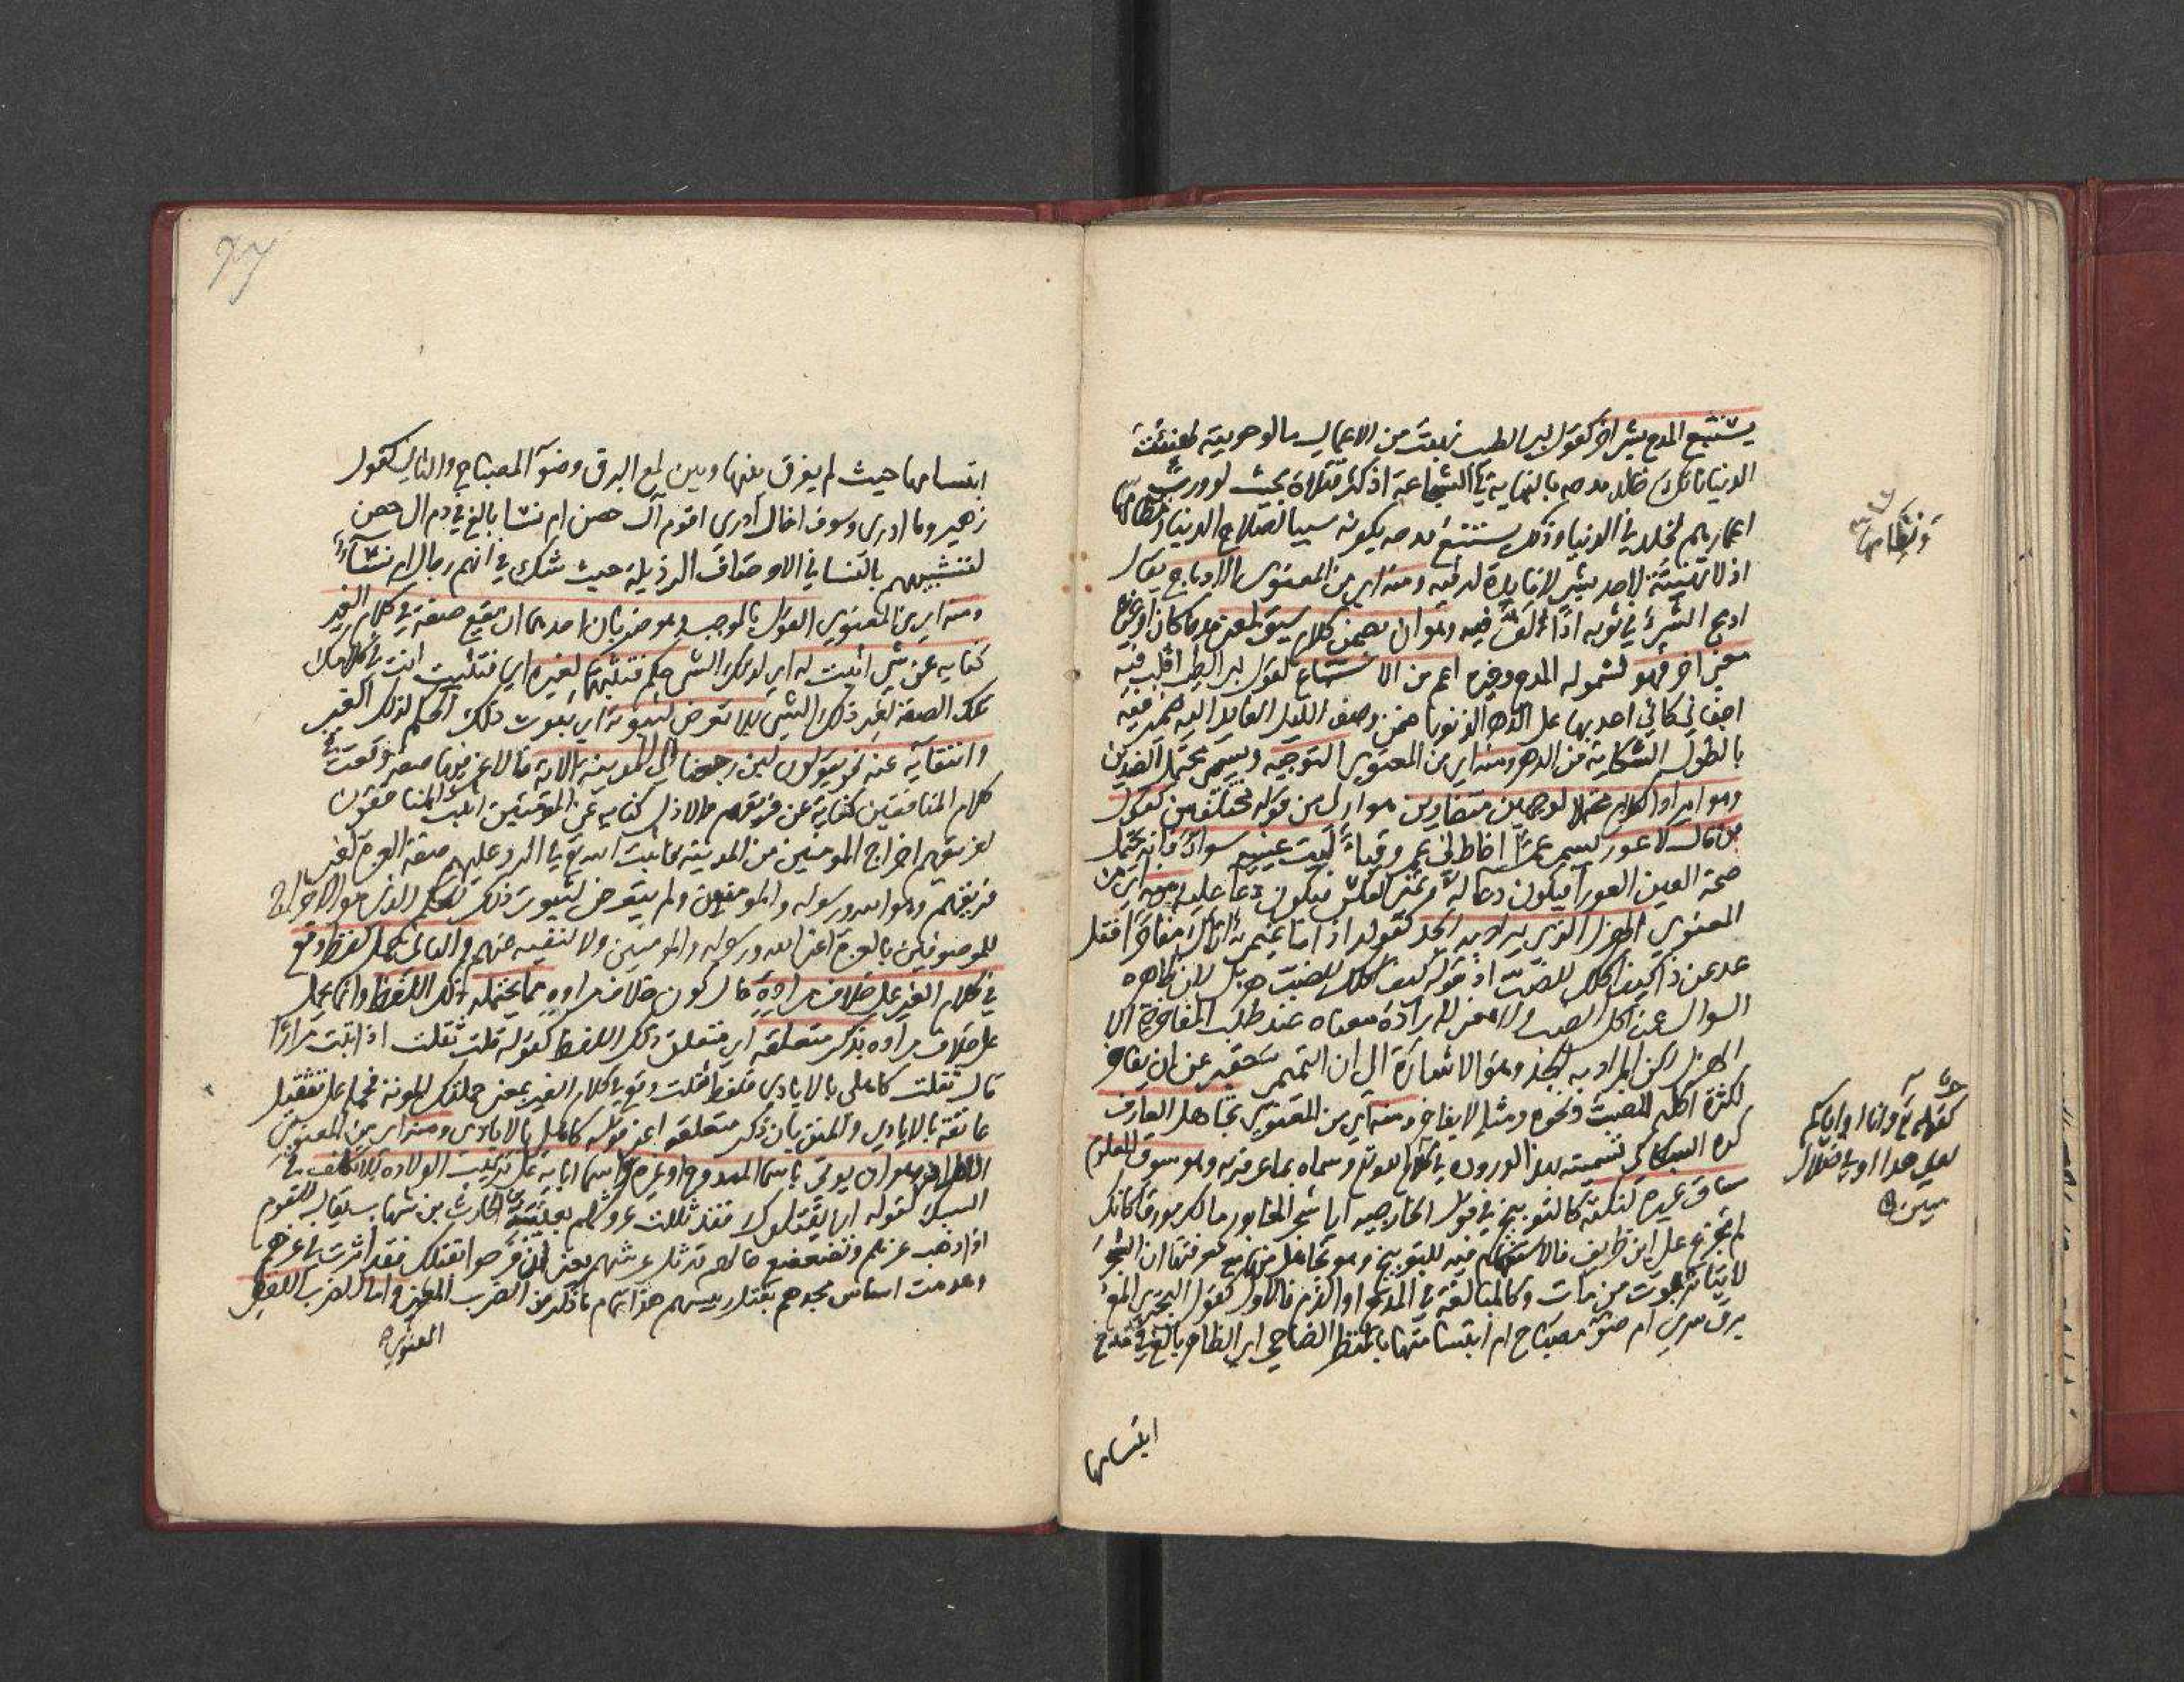 يستتبع المدح بشئ اخر كقول ابي الطيب نهبت من الاعمار ما لو حويته لهنئت
الدنيا بانك خالد مدحه بالنهاية في الشجاعة اذ كثر قتلاه بحيث لو ورث
اعمارهم لخلد في الدنيا وذلك يستتبع مدحه بكونه سببا لصلاح الدنيا ونظامها
اذ لا تهنئة لاحد بشئ لا فايدة له فيه ومنه اي من المعنوي الادماج يقال
ادمج الشئ في ثوبه اذا لفه فيه وهو ان يضمن كلام سيق لمعنى مدحا كان او غيره
معنى اخر فهو لشموله المدح وغيره اعم من الاستتباع كقول ابي الطيب اقلب فيه
اجفاني كاني اعد بها على الدهر الذنوبا ضمن وصف الليل العايد اليه ضمير فيه
بالطول الشكاية من الدهر ومنه اي من المعنوي التوجيه ويسمى محتمل الضدين
وهو ايراد الكلام محتملا لوجهين متضادين هو اولى من قوله مختلفين كقول
من قال لاعور يسمى عمرا خاط لي عمرو قباء ليت عينيه سواء فانه يحتمل
صحة العين العورا فيكون دعا له وتمنى العكس فيكون دعا عليه ومنه اي من
المعنوي الهزل الذي يراد به الجد كقوله اذا ما تميمي اتاك مفاخرا فقل
عد عن ذا كيف اكلك للضب اذ قوله كيف اكلك للضب هزل لان ظاهره
السوال عن اكل الضب ولا معنى لارادة معناه عند طلب المفاخرة الا
الهزل لكن المراد به الجد وهو الاشارة الى ان التميمي حقير عن ان يفاخر
لكثرة اكله للضب ونحوه ومثله لا يفاخر ومنه اي من المعنوي تجاهل العارف
كره السكاكي تسميته به لوروده في كلام الله تع وسماه بما عرف به وهو سوق المعلوم
مساق غيره لنكتة كالتوبيخ في قول الخارجية ايا شجر الخابور مالك مورقا كانك
لم تجزع على ابن طريف فالاستفهام فيه للتوبيخ وهو تجاهل منها مع معرفتها ان الشجر
لا يتاثر بموت من مات وكالمبالغة في المدح او الذم فالاول كقول البحتري المع
برق سرى ام ضوء مصباح ام ابتسامتها بالمنظر الضاحي اي الظاهر بالغ في مدح
ابتسامها
ونظامها
كقوله تع وانا او اياكم
لعلى هدى او في ضلال
مبين
ابتسامها حيث لم يفرق بينها وبين لمع البرق وضوء المصباح والثاني كقول
زهير وما ادري وسوف اخال ادري اقوم آل حصن ام نساء بالغ في ذم ال حصن
لتشبيههم بالنسا في الاوصاف الرذيلة حيث شك في انهم رجال ام نساء
ومنه اي من المعنوي القول بالموجب وهو ضربان احدهما ان تقع صفة في كلام الغير
كناية عن شئ اثبت له اي لذلك الشئ حكم فتثبتها لغيره اي فتثبت انت في كلامك
تلك الصفة لغير ذلك الشئ بلا تعرض لثبوته اي ثبوت ذلك الحكم لذلك الغير
وانتفائه عنه نحو يقولون لئن رجعنا الى المدينة الاية فالاعز فيها صفة وقعت في
كلام المنافقين كناية عن فريقهم والاذل كناية عن المؤمنين اثبت المنافقون
لفريقهم اخراج المومنين من المدينة فاثبت الله تع في الرد عليهم صفة العزة لغير
فريقهم وهو الله ورسوله والمومنون ولم يتعرض لثبوت ذلك الحكم الذي هو الاخراج
للموصوفين بالعزة اعني الله ورسوله والمومنين ولا لنفيه عنهم والثاني حمل لفظ وقع
في كلام الغير على خلاف مراده حال كون خلاف مراده مما يحتمله ذلك اللفظ وانما يحمل
على خلاف مراده بذكر متعلقه اي متعلق ذلك اللفظ كقوله قلت ثقلت اذ اتيت مرارا
قال ثقلت كاهلي بالايادي فلفظ ثقلت وقع في كلام الغير بمعنى حملتك المؤنة فحمله على تثقيل
عاتقه بالايادي والمنن بان ذكر متعلقه اعني قوله كاهلي بالايادي ومنه اي من المعنوي
الاطراد وهو ان يوتى باسماء الممدوح او غيره واسماء ابايه على ترتيب الولادة بلا تكلف في
السبك كقوله ان يقتلوك فقد ثللت عروشهم بعتيبة بن الحارث بن شهاب يقال للقوم
اذا ذهب عزهم وتضعضع حالهم قد ثل عرشهم يعني ان فرحوا بقتلك فقد اثرت في عزهم
وهدمت اساس مجدهم بقتل رييسهم هذا تمام ما ذكر من الضرب المعنوي اما الضرب اللفظي
المعنوي